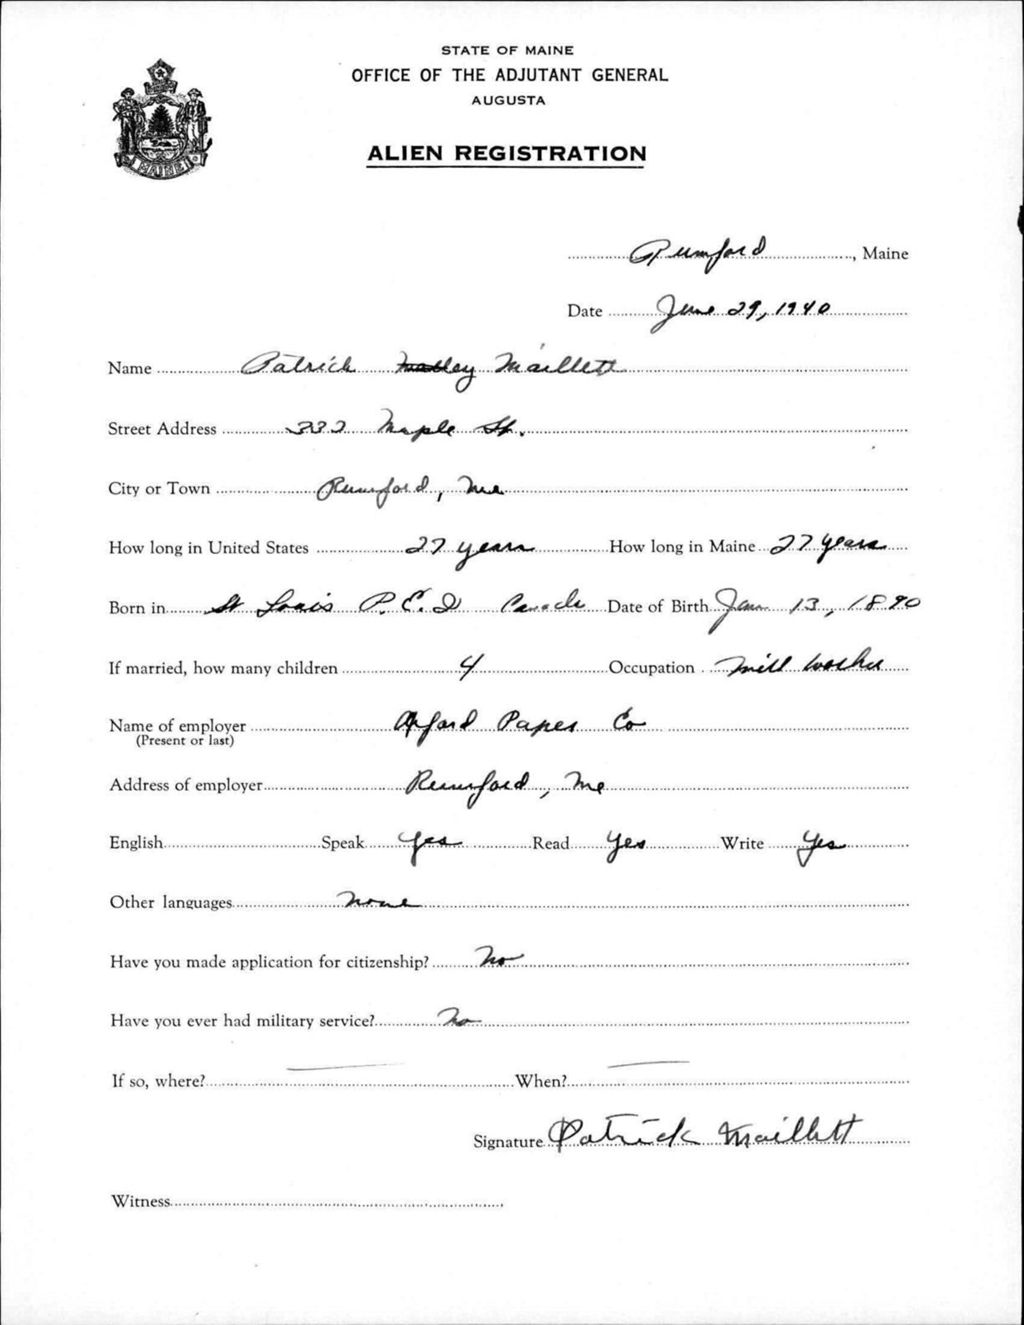 STATE OF MAINE
OFFICE OF THE ADJUTANT GENERAL
AUGUSTA
ALIEN REGISTRATION
MAINE
Rumford, Maine
Date June 29, 1940
Name Patrick Maillett
Street Address 332 Maple St.
City or Town Rumford, Me
How long in United States 27 years How long in Maine 27 years
Born in St Louis P.E.I Canada Date of Birth Jan. 13, 1890
If married, how many children 4 Occupation Mill worker
Name of employer Oxford Paper Co
(Present or last)
Address of employer Rumford, Me
English Speak Yes Read Yes Write Yes
Other languages None
Have you made application for citizenship? No
Have you ever had military service? No
If so, where? — When? —
Signature Patrick Maillett
Witness